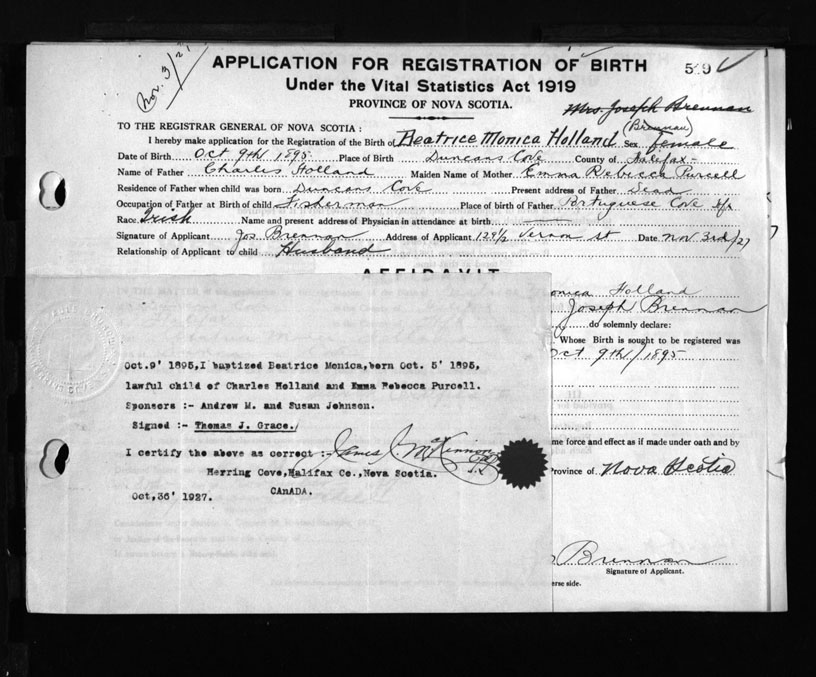 Nov. 3/27
APPLICATION FOR REGISTRATION OF BIRTH
529
Under the Vital Statistics Act 1919
PROVINCE OF NOVA SCOTIA.
Mrs. Joseph Brennan
TO THE REGISTRAR GENERAL OF NOVA SCOTIA :
(Brennan)
I hereby make application for the Registration of the Birth of Beatrice Monica Holland Sex female
Date of Birth Oct 9th 1895 Place of Birth Duncans Cove County of Halifax
Name of Father Charles Holland Maiden Name of Mother Emma Rebecca Purcell
Residence of Father when child was born Duncans Cove Present address of Father Dead
Occupation of Father at Birth of child Fisherman Place of birth of Father Portuguese Cove Hfx
Race Irish Name and present address of Physician in attendance at birth
Signature of Applicant Jos Brennan Address of Applicant 129 1/2 Vernon st Date Nov 3rd/27
Relationship of Applicant to child Husband
AFFIDAVIT
onica Holland
Joseph Brennan
do solemnly declare:
Whose Birth is sought to be registered was
Oct 9th/1895
Oct.9' 1895,I baptized Beatrice Monica,born Oct. 5' 1895,
lawful child of Charles Holland and Emma Rebecca Purcell.
Sponsors :- Andrew M. and Susan Johnson.
Signed :- Thomas J. Grace.
me force and effect as if made under oath and by
I certify the above as correct :- James J. McKinnon
Province of Nova Scotia
Herring Cove,Halifax Co.,Nova Scotia.
CAnADA.
Oct,36' 1927.
Brennan
Signature of Applicant.
erse side.